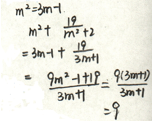 m²=3m-1.
m²+ 19/(m²+2)
=3m-1+ 19/(3m+1)
= (9m²-1+19)/(3m+1) = 9(3m+1)/(3m+1)
=9